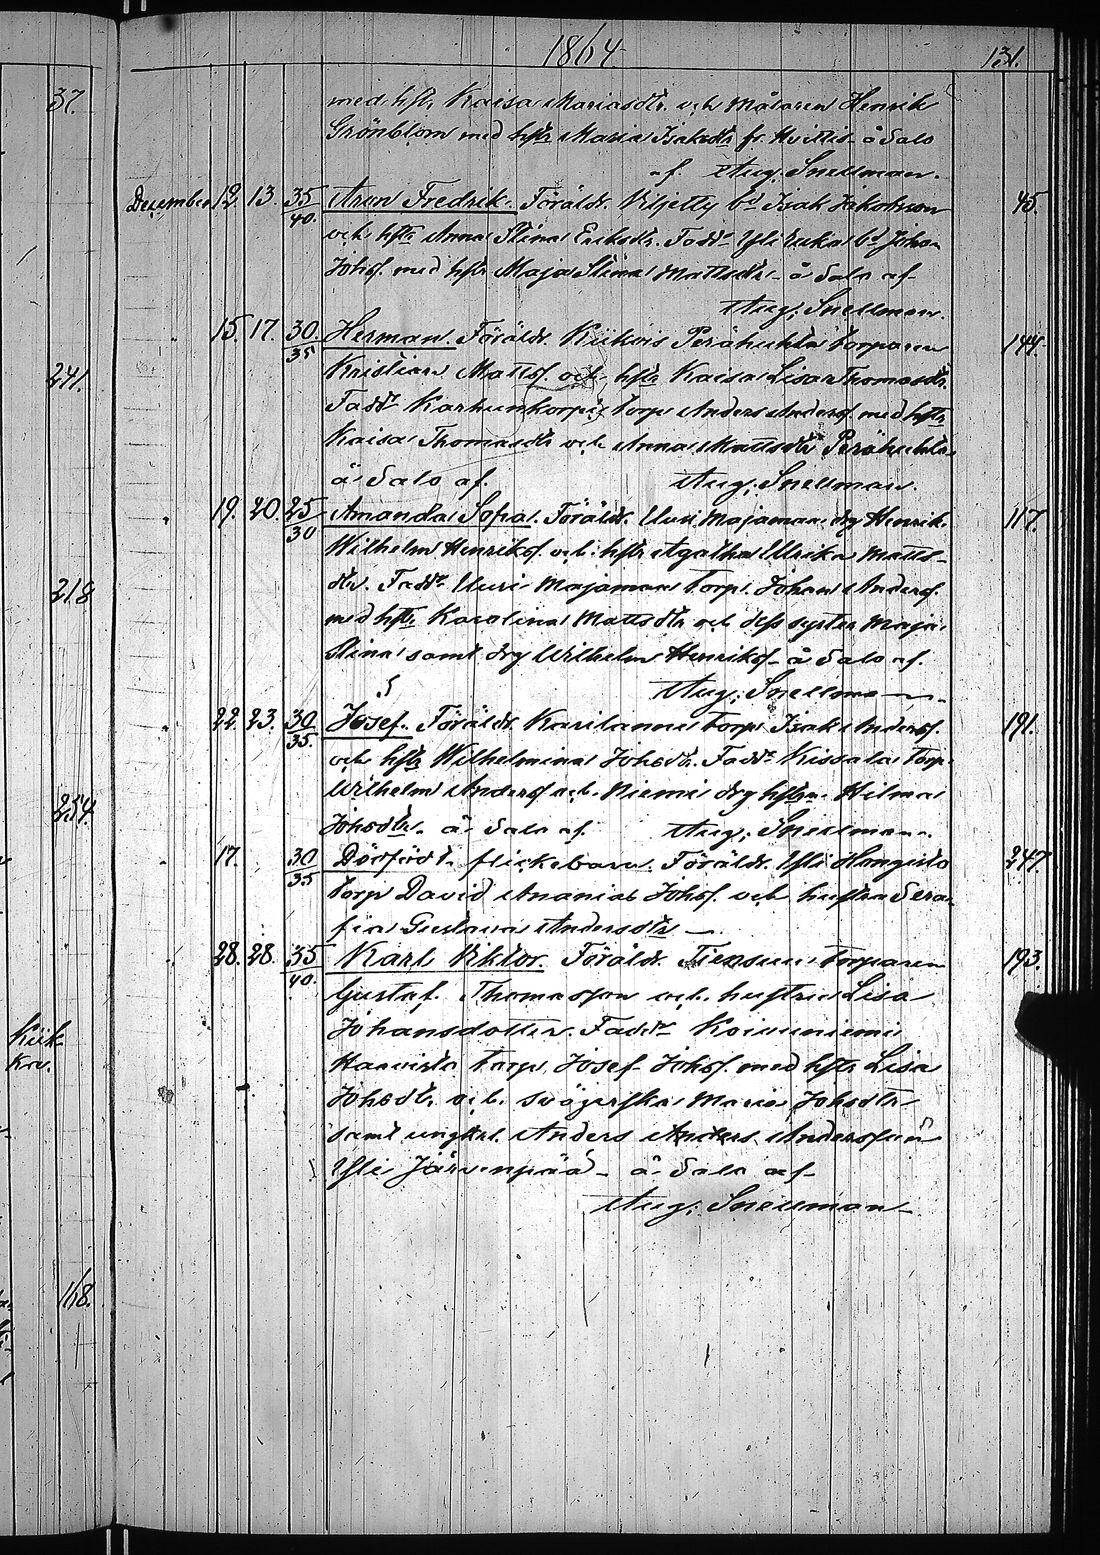 1864.
131.
37.
med hstr Kaisa Mariasdtr. och Målaren Henrik
Grönblom med hstr Maria Isaksdtr fr. Hvittis å Salo
af. Aug. Snellman.
December 12. 13. 35/40. Aron Fredrik. Föräldr. Viljetty bd Isak Jakobsson 45.
och hstr Anna Stina Eriksdtr. Fadd. Yli bd Johan
Johsf. med hstr Maja Stina Mattsdtr å Salo af
Aug. Snellman.
" 15. 17. 30/35 Herman. Föräldr. Kiikois Perähuhta Torparen 144.
241.
Kristian Mattsf. och hstr Kaisa Lisa Thomasdtr.
Fadd. Karhunkorpi torp. Anders Andersf. med hstr
Kaisa Thomasdtr och Anna Mattsdtr Perähuhta
å Salo af. Aug. Snellman.
" 19. 20. 25/30 Amanda Sofia. Föräldr. Uusi Majamaa drg Henrik 117.
Wilhelm Henriksf. och hstr Agatha Ulrika Matts-
218
dtr. Fadd. Uusi Majamaa torp. Johan Andersf.
med hstr Karolina Mattsdtr och dess syster Maja
Stina samt drg Wilhelm Henriksf. å Salo af.
Aug. Snellman.
" 22. 23. 30/35. Josef. Föräldr. torp. Isak Andersf. 191.
och hstr Wilhelmina Johsdtr. Fadd. Kissala torp.
254.
Wilhelm Andersf och Niemi drg hstrn Hilma
Johsdtr. å Salo af. Aug. Snellman.
" 17. 30/35 Dödfödt flickebarn. Föräldr. Yli Hongisto 247.
torp David Ananias Johsf. och hustru Sera-
fia Gustava Andersdtr.
" 28. 28. 35/40. Karl Viktor. Föräldr. Torparen 193.
Gustaf Thomasson och hustru Lisa
Johansdotter. Fadd. Koivuniemi
Kiik-
torp. Josef Johsf. med hstr Lisa
Johsdtr. och svägerska Maria Johsdtr
samt ungkrl. Anders Andersson
Yli Järvenpää å Salo af
Aug. Snellman
168.